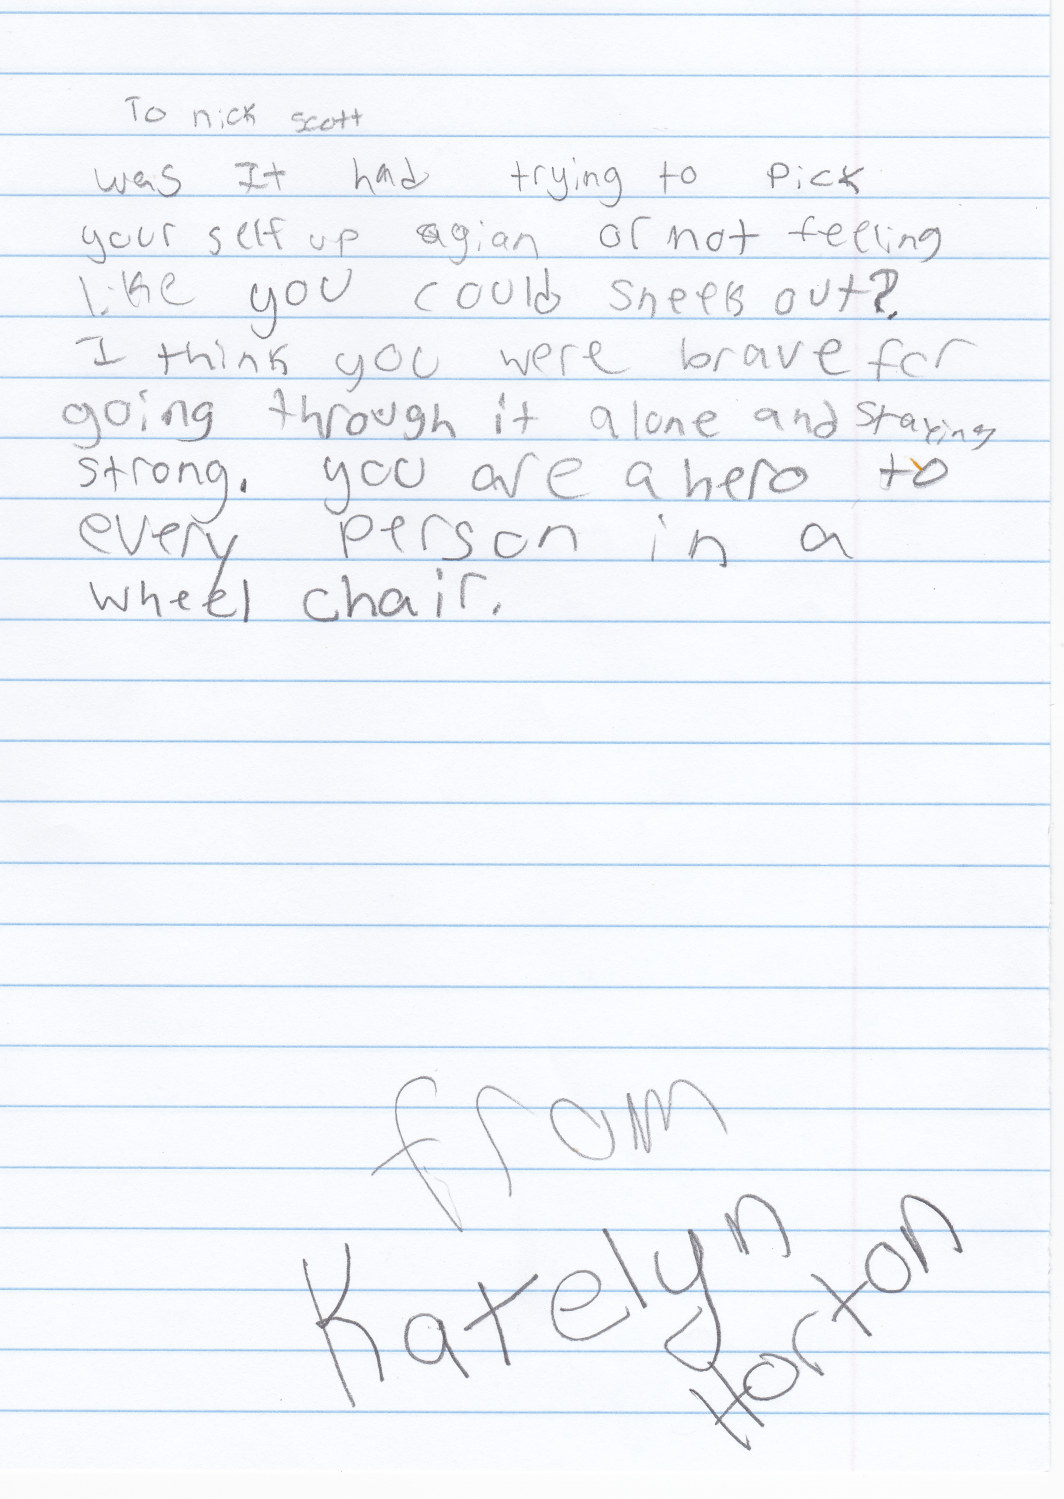 To nick scott
was It had trying to Pick
your self up agian or not feeling
Like you could sneek out?
I think you were brave for
going through it alone and staying
strong. you are a hero to
every person in a
wheel chair.
from
Katelyn
Horton